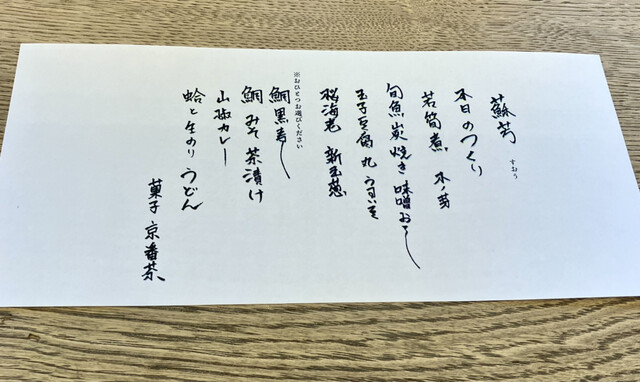 蘇芳 すおう
本日のつくり
若筍煮 木ノ芽
旬魚炭焼き 味噌おろし
玉子豆腐 丸 うすいえ
桜海老 新玉葱
※おひとつお選びください
鯛黒寿し
鯛みそ茶漬け
山椒カレー
蛤と生のりうどん
菓子 京番茶